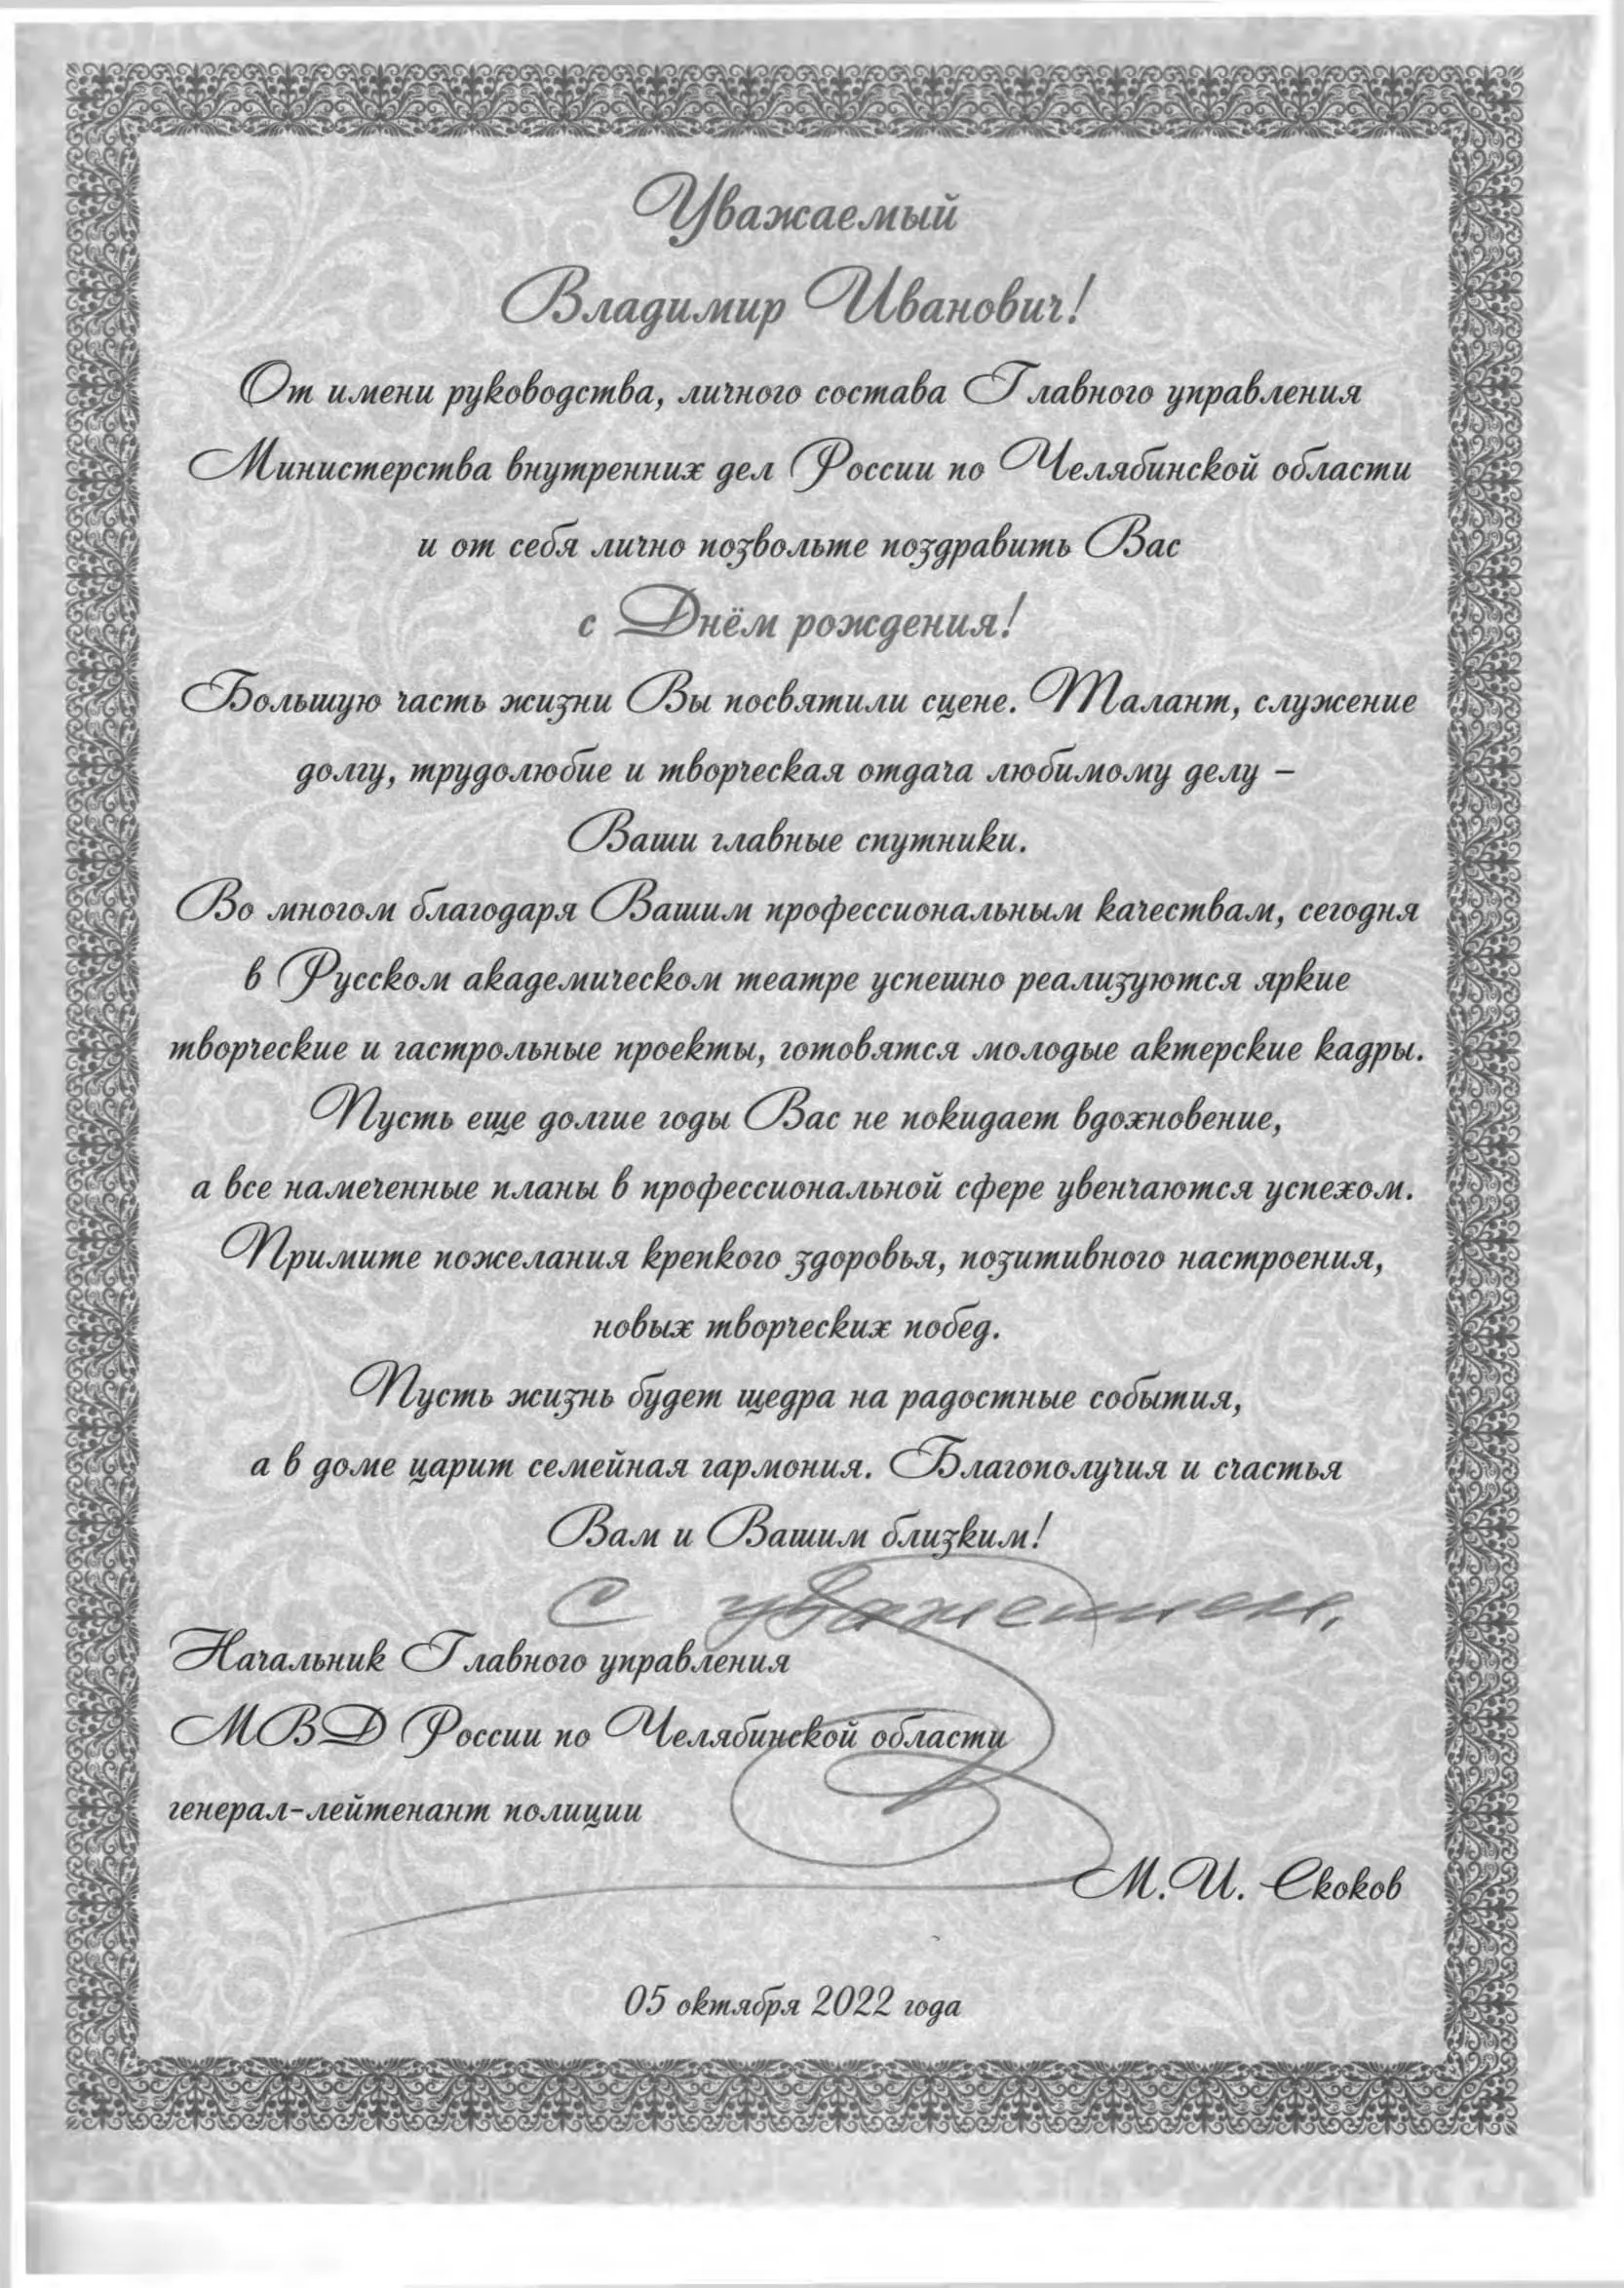 Уважаемый
Владимир Иванович!
От имени руководства, личного состава Главного управления
Министерства внутренних дел России по Челябинской области
и от себя лично позвольте поздравить Вас
с Днём рождения!
Большую часть жизни Вы посвятили сцене. Талант, служение
долгу, трудолюбие и творческая отдача любимому делу –
Ваши главные спутники.
Во многом благодаря Вашим профессиональным качествам, сегодня
в Русском академическом театре успешно реализуются яркие
творческие и гастрольные проекты, готовятся молодые актерские кадры.
Пусть еще долгие годы Вас не покидает вдохновение,
а все намеченные планы в профессиональной сфере увенчаются успехом.
Примите пожелания крепкого здоровья, позитивного настроения,
новых творческих побед.
Пусть жизнь будет щедра на радостные события,
а в доме царит семейная гармония. Благополучия и счастья
Вам и Вашим близким!
С уважением,
Начальник Главного управления
МВД России по Челябинской области
генерал-лейтенант полиции
М.И. Скоков
05 октября 2022 года